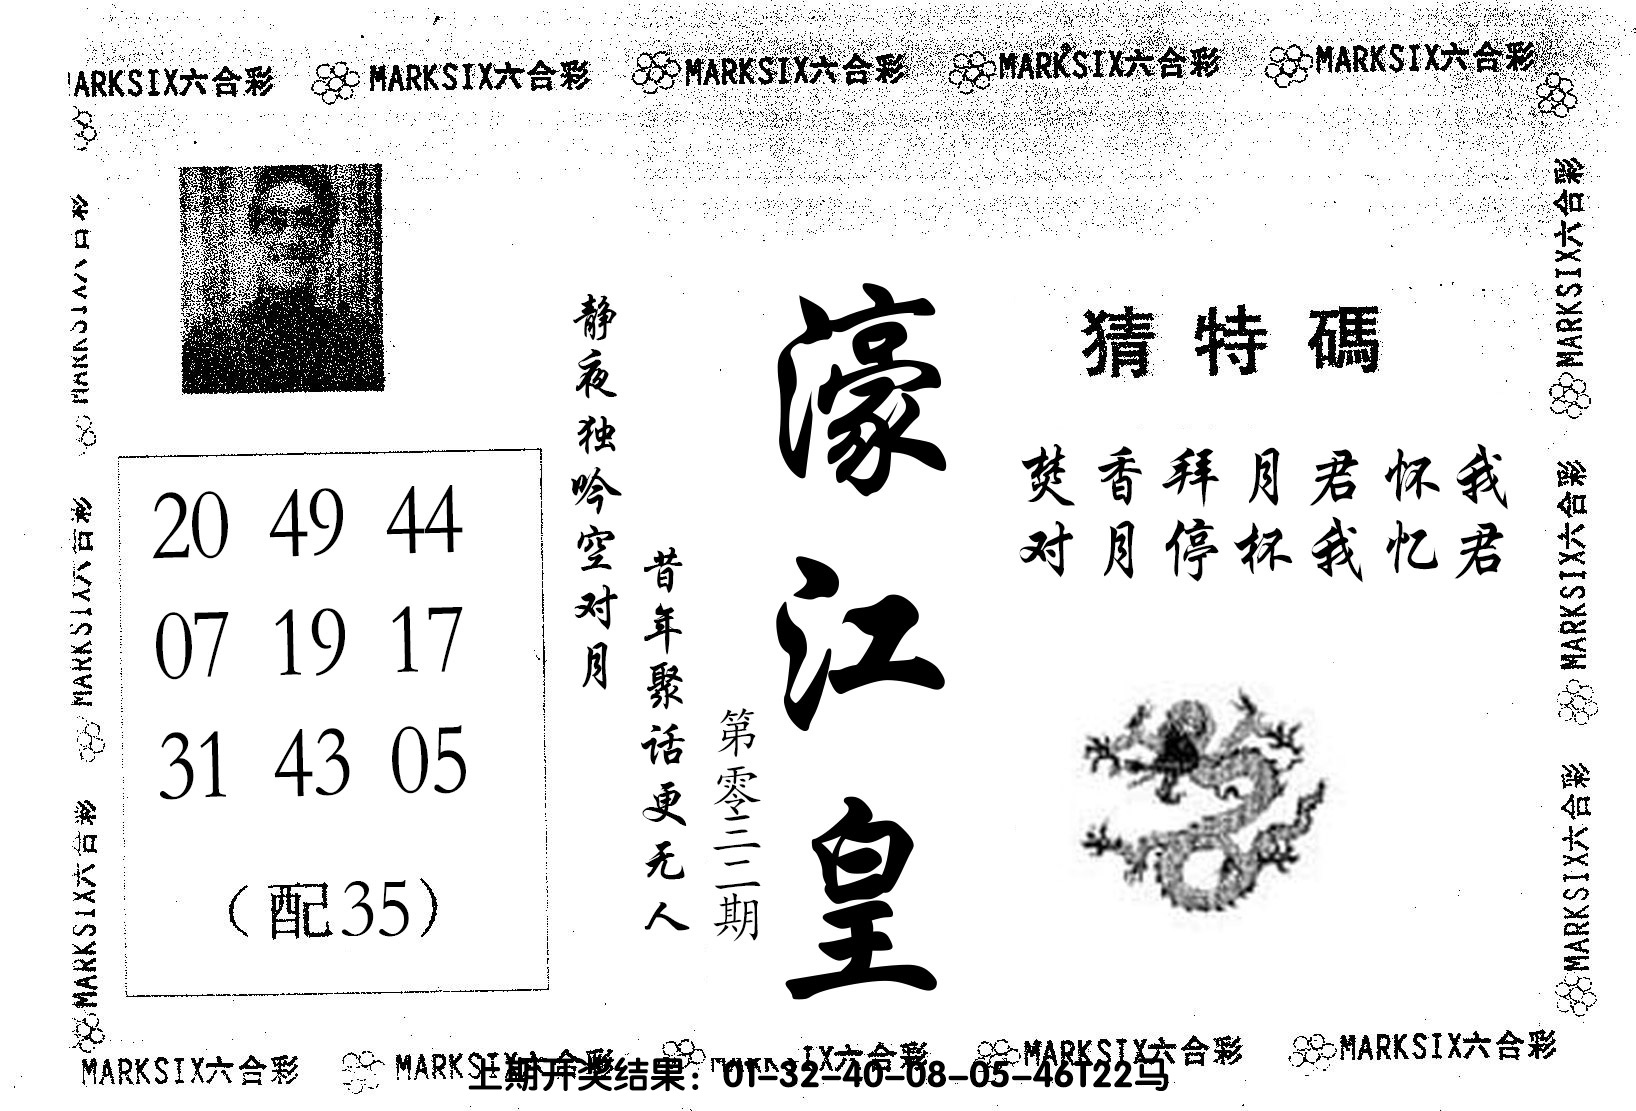 MARKSIX六合彩 MARKSIX六合彩 MARKSIX六合彩 MARKSIX六合彩 MARKSIX六合彩
MARKSIX六合彩
MARKSIX六合彩
MARKSIX六合彩
20 49 44
07 19 17
31 43 05
(配35)
静夜独吟空对月
昔年聚话更无人
第零三二期
濠江皇
猜特碼
焚香拜月君怀我
对月停杯我忆君
MARKSIX六合彩
MARKSIX六合彩
MARKSIX六合彩
MARKSIX六合彩 MARKSIX六合彩 MARKSIX六合彩 MARKSIX六合彩 MARKSIX六合彩
上期开奖结果：01-32-40-08-05-46T22马